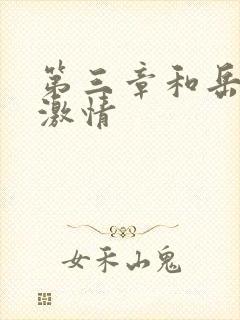 第三章和岳
激情
女禾山鬼